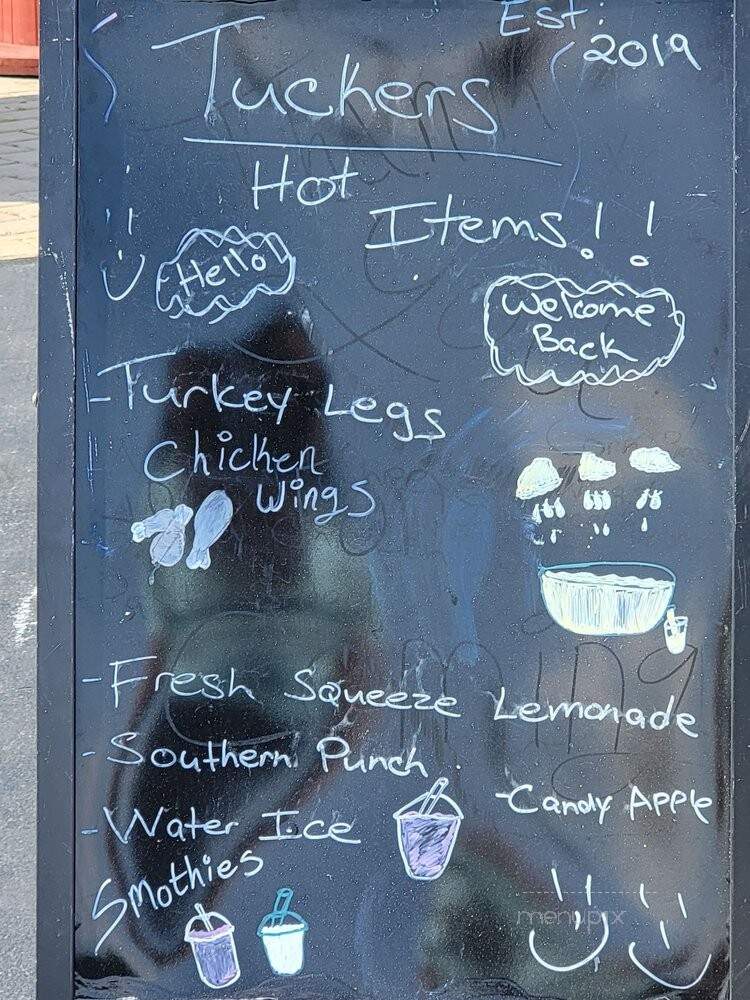 Est. 2019
Tuckers
Hot
Items!!
Hello!
Welcome
Back
-Turkey Legs
Chicken
Wings
-Fresh Squeeze Lemonade
-Southern Punch
-Candy Apple
-Water Ice
Smothies
menupix